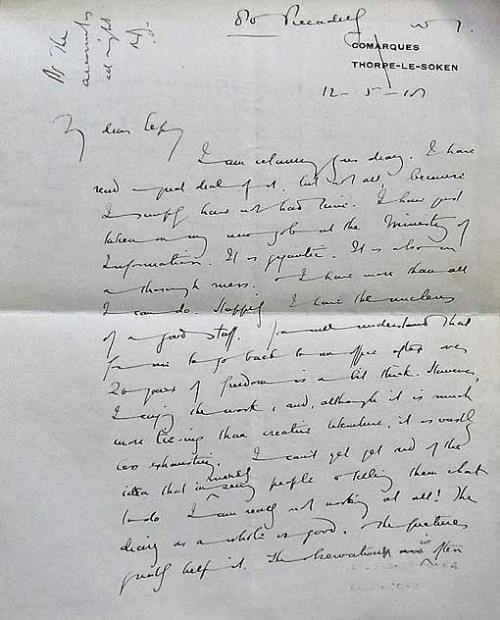 80 Piccadilly W.1.
COMARQUES
THORPE-LE-SOKEN
12-5-18
P.S. The
accounts
all right
My dear
I am returning yr diary. I have
read a great deal of it, but not all, because
I simply have not had time. I have just
taken on my new job at the Ministry of
Information. It is gigantic. It is also in
a thorough mess. I have more than all
I can do. Happily I have the nucleus
of a good staff. You will understand that
for me to go back to an office after over
20 years of freedom is a bit thick. However,
I enjoy the work, and, although it is much
more tiring than creative literature, it is vastly
less exhausting. I can't get rid of the
idea that in merely seeing people & telling them what
to do I am really not working at all! The
diary as a whole is good. The pictures
greatly help it. The observations are often